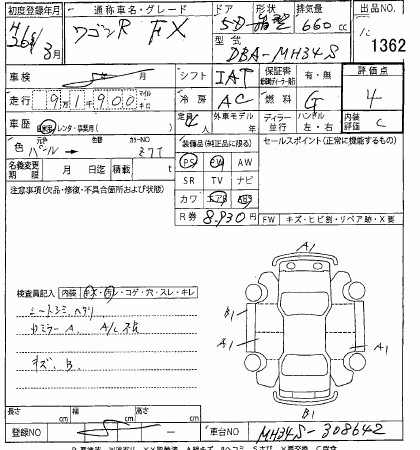 初度登録年月 通称車名・グレード ドア 形状 排気量 出品NO.
H26年 3月 ワゴンR FX 5D 箱型 660cc 1362
型式 DBA-MH34S
車検 年 月 シフト IAT 保証書 有・無 評価点
走行 9万1千900 マイル キロ 冷房 AC 燃料 G 4
車歴 自家用・レンタ・事業用( ) 定員 4人 外車モデル 年 ディーラー 並行 ハンドル 左・右 内装評価 C
色 元色 パール 色替 カラーNO Z7T 装備品(純正品に限る) セールスポイント(正常に機能するもの)
PS PW AW
名義変更期限 月 日迄 積載 t SR TV ナビ
注意事項(欠品・修復・不具合箇所および状態) カワ エアB ABS
R券 8,930円 FW キズ・ヒビ割・リペア跡・X要
A1
検査員記入 内装 キズ・汚レ・コゲ・穴・スレ・キレ B1
シートシミ、ヘタリ
カガミラーA、A/C不良 A1 A1
キズ、B
B1
長さ cm 幅 cm 高さ cm
登録NO 車台NO MH34S-308642